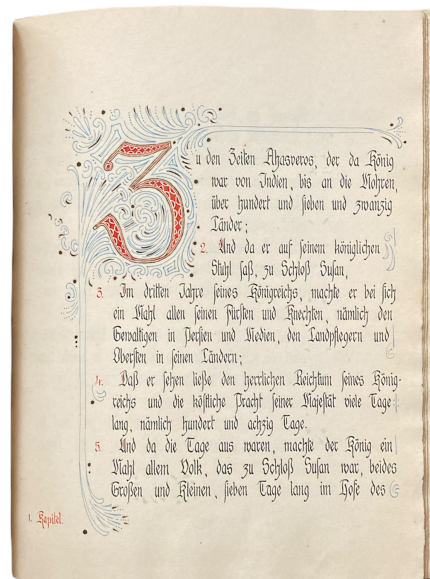 Zu den Zeiten Ahasveros, der da König
war von Indien, bis an die Mohren,
über hundert und sieben und zwanzig
Länder;
2. Und da er auf seinem königlichen
Stuhl saß, zu Schloß Susan,
3. Im dritten Jahre seines Königreichs, machte er bei sich
ein Mahl allen seinen Fürsten und Knechten, nämlich den
Gewaltigen in Persien und Medien, den Landpflegern und
Obersten in seinen Ländern;
4. Daß er sehen ließe den herrlichen Reichtum seines König-
reichs und die köstliche Pracht seiner Majestät viele Tage
lang, nämlich hundert und achzig Tage.
5. Und da die Tage aus waren, machte der König ein
Mahl allem Volk, das zu Schloß Susan war, beides
Großen und Kleinen, sieben Tage lang im Hofe des
1. Kapitel.